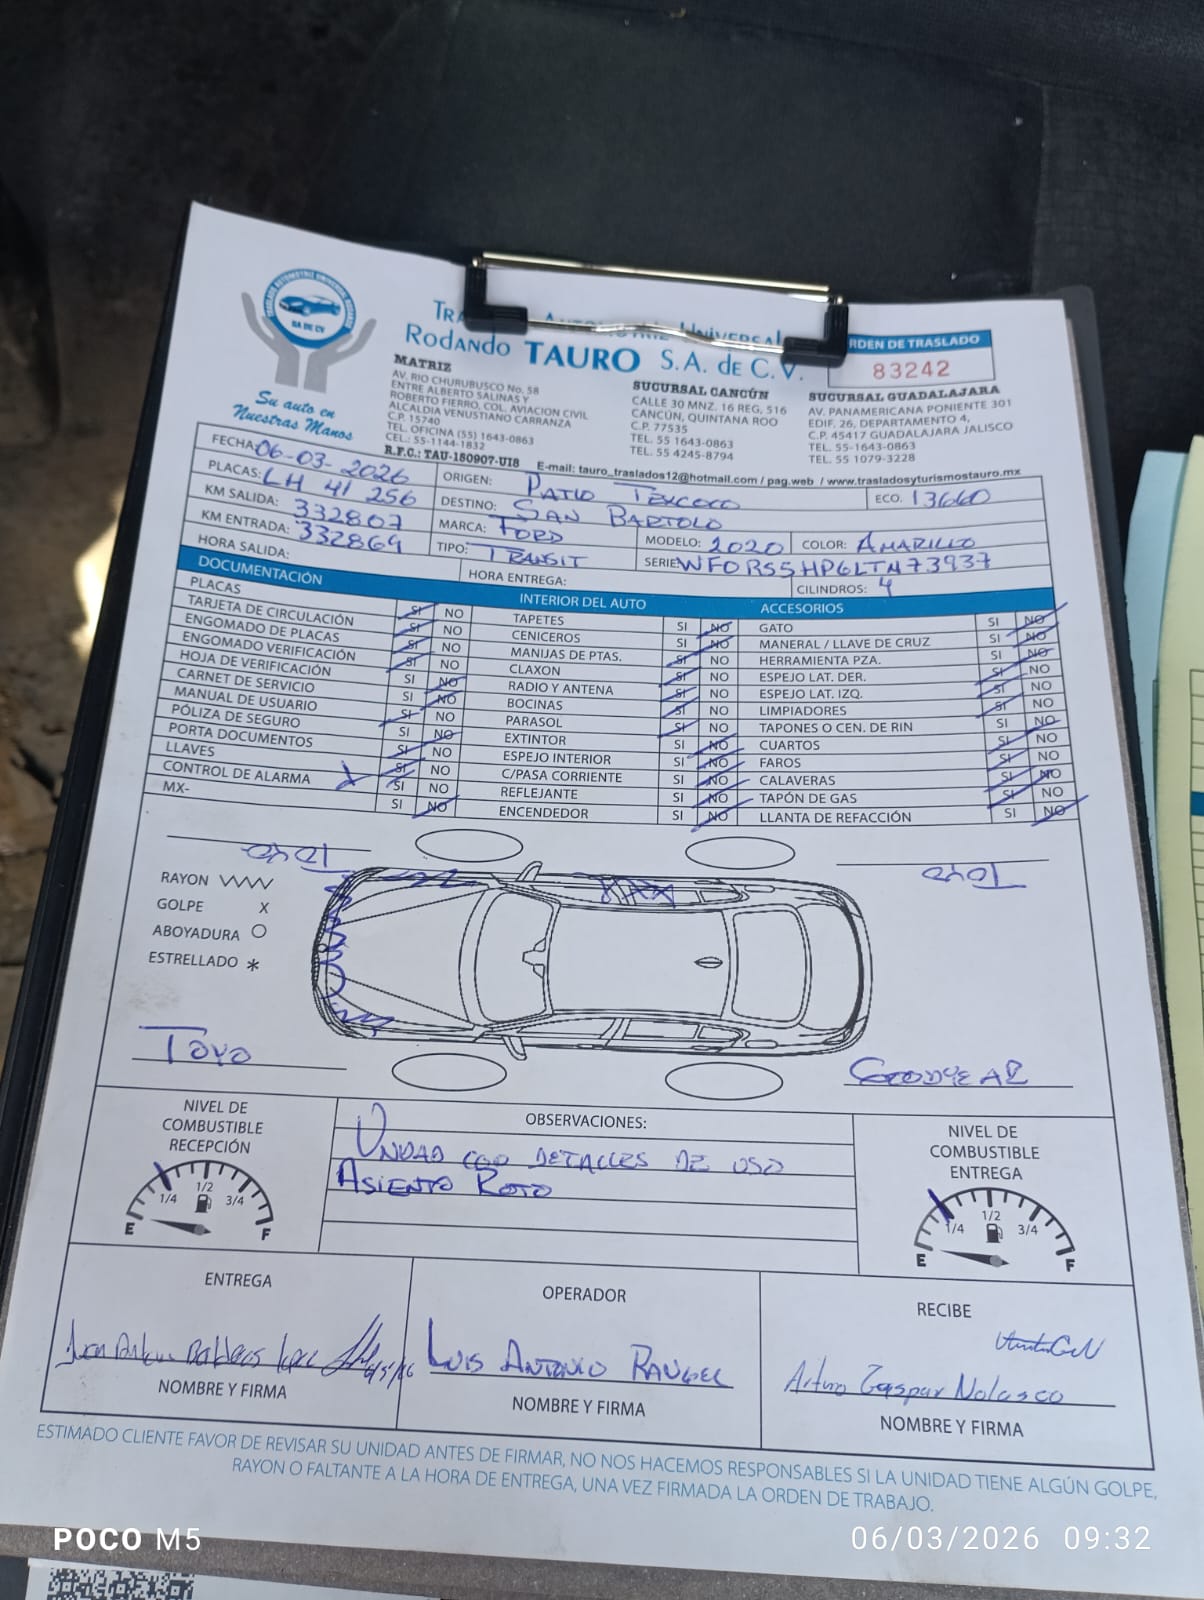 TRASLADO AUTOMOTRIZ UNIVERSAL RODANDO
SA DE CV
Su auto en
Nuestras Manos
Rodando TAURO S.A. de C.V.
RDEN DE TRASLADO
83242
MATRIZ
AV. RIO CHURUBUSCO No. 58
ENTRE ALBERTO SALINAS Y
ROBERTO FIERRO, COL. AVIACION CIVIL
ALCALDIA VENUSTIANO CARRANZA
C.P. 15740
TEL. OFICINA (55) 1643-0863
CEL.: 55-1144-1832
R.F.C.: TAU-150907-UI8
SUCURSAL CANCÚN
CALLE 30 MNZ. 16 REG, 516
CANCÚN, QUINTANA ROO
C.P. 77535
TEL. 55 1643-0863
TEL. 55 4245-8794
SUCURSAL GUADALAJARA
AV. PANAMERICANA PONIENTE 301
EDIF. 26, DEPARTAMENTO 4,
C.P. 45417 GUADALAJARA JALISCO
TEL. 55-1643-0863
TEL. 55 1079-3228
E-mail: tauro_traslados12@hotmail.com / pag.web / www.trasladosyturismostauro.mx
FECHA: 06-03-2026
PLACAS: LH 41 256
KM SALIDA: 332807
KM ENTRADA: 332869
HORA SALIDA:
ORIGEN: PATIO TEXCOCO
ECO. 13660
DESTINO: SAN BARTOLO
MARCA: FORD
MODELO: 2020
COLOR: AMARILLO
TIPO: TRANSIT
SERIE WF0RS5HP6LTA73937
HORA ENTREGA:
CILINDROS: 4
DOCUMENTACIÓN
PLACAS SI NO
TARJETA DE CIRCULACIÓN SI NO
ENGOMADO DE PLACAS SI NO
ENGOMADO VERIFICACIÓN SI NO
HOJA DE VERIFICACIÓN SI NO
CARNET DE SERVICIO SI NO
MANUAL DE USUARIO SI NO
PÓLIZA DE SEGURO SI NO
PORTA DOCUMENTOS SI NO
LLAVES SI NO
CONTROL DE ALARMA SI NO
MX- SI NO
INTERIOR DEL AUTO
TAPETES SI NO
CENICEROS SI NO
MANIJAS DE PTAS. SI NO
CLAXON SI NO
RADIO Y ANTENA SI NO
BOCINAS SI NO
PARASOL SI NO
EXTINTOR SI NO
ESPEJO INTERIOR SI NO
C/PASA CORRIENTE SI NO
REFLEJANTE SI NO
ENCENDEDOR SI NO
ACCESORIOS
GATO SI NO
MANERAL / LLAVE DE CRUZ SI NO
HERRAMIENTA PZA. SI NO
ESPEJO LAT. DER. SI NO
ESPEJO LAT. IZQ. SI NO
LIMPIADORES SI NO
TAPONES O CEN. DE RIN SI NO
CUARTOS SI NO
FAROS SI NO
CALAVERAS SI NO
TAPÓN DE GAS SI NO
LLANTA DE REFACCIÓN SI NO
Toyo
Toyo
RAYON
GOLPE X
ABOYADURA O
ESTRELLADO *
Toyo
GOODYEAR
NIVEL DE
COMBUSTIBLE
RECEPCIÓN
E 1/4 1/2 3/4 F
OBSERVACIONES:
UNIDAD CON DETALLES DE USO
ASIENTO ROTO
NIVEL DE
COMBUSTIBLE
ENTREGA
E 1/4 1/2 3/4 F
ENTREGA
NOMBRE Y FIRMA
OPERADOR
LUIS ANTONIO RANGEL
NOMBRE Y FIRMA
RECIBE
Arturo Gaspar Nolasco
NOMBRE Y FIRMA
ESTIMADO CLIENTE FAVOR DE REVISAR SU UNIDAD ANTES DE FIRMAR, NO NOS HACEMOS RESPONSABLES SI LA UNIDAD TIENE ALGÚN GOLPE,
RAYON O FALTANTE A LA HORA DE ENTREGA, UNA VEZ FIRMADA LA ORDEN DE TRABAJO.
POCO M5
06/03/2026 09:32